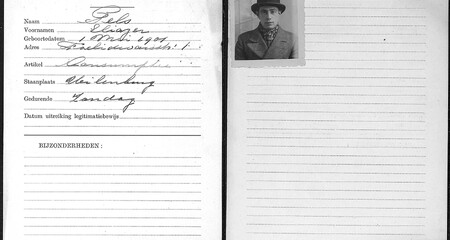 Naam Fels
Voornamen Eliazer
Geboortedatum 1 Mei 1901
Adres
Artikel Consumptie
Staanplaats Uilenburg
Gedurende Zondag
Datum uitreiking legitimatiebewijs
BIJZONDERHEDEN: